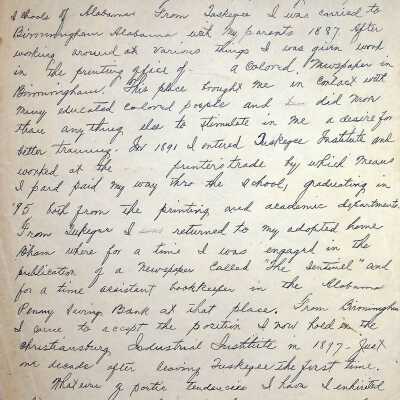 schools of Alabama. From Tuskegee I was carried to
Birmingham Alabama with my parents 1887. After
working around at various things I was given work
in the printing office of a Colored. Newspaper in
Birmingham. This place brought me in contact with
many educated colored people and did more
than anything else to stimulate in me a desire for
better training. In 1891 I entered Tuskegee Institute and
worked at the printer's trade by which means
I paid my way thro the school, graduating in
'95 both from the printing and academic departments.
From Tukegee I returned to my adopted home
B'ham where for a time I was engaged in the
publication of a Newspaper called "The Sentinel" and
for a time assistent bookkeeper in the Alabama
Penny Savings Bank at that place. From Birmingham
I came to accept the position I now hold in the
Christiansburg Industrial Institute in 1897 - Just
one decade after leaving Tuskegee the first time.
Whatever poetic tendencies I have I inherited